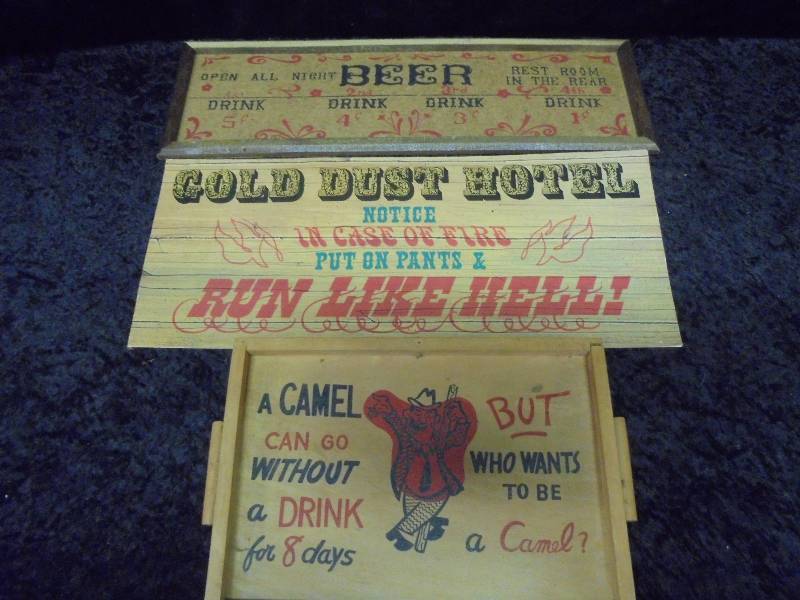 OPEN ALL NIGHT BEER REST ROOM
IN THE REAR
1st 2nd 3rd 4th
DRINK DRINK DRINK DRINK
5¢ 4¢ 3¢ 1¢
GOLD DUST HOTEL
NOTICE
IN CASE OF FIRE
PUT ON PANTS &
RUN LIKE HELL!
A CAMEL
CAN GO
WITHOUT
a DRINK
for 8 days
BUT
WHO WANTS
TO BE
a Camel?